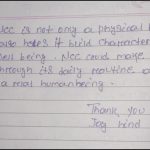 NCC is not only a physical
it build character
being. NCC could make
through its daily routine
a real human being.
Thank you
Jay Hind